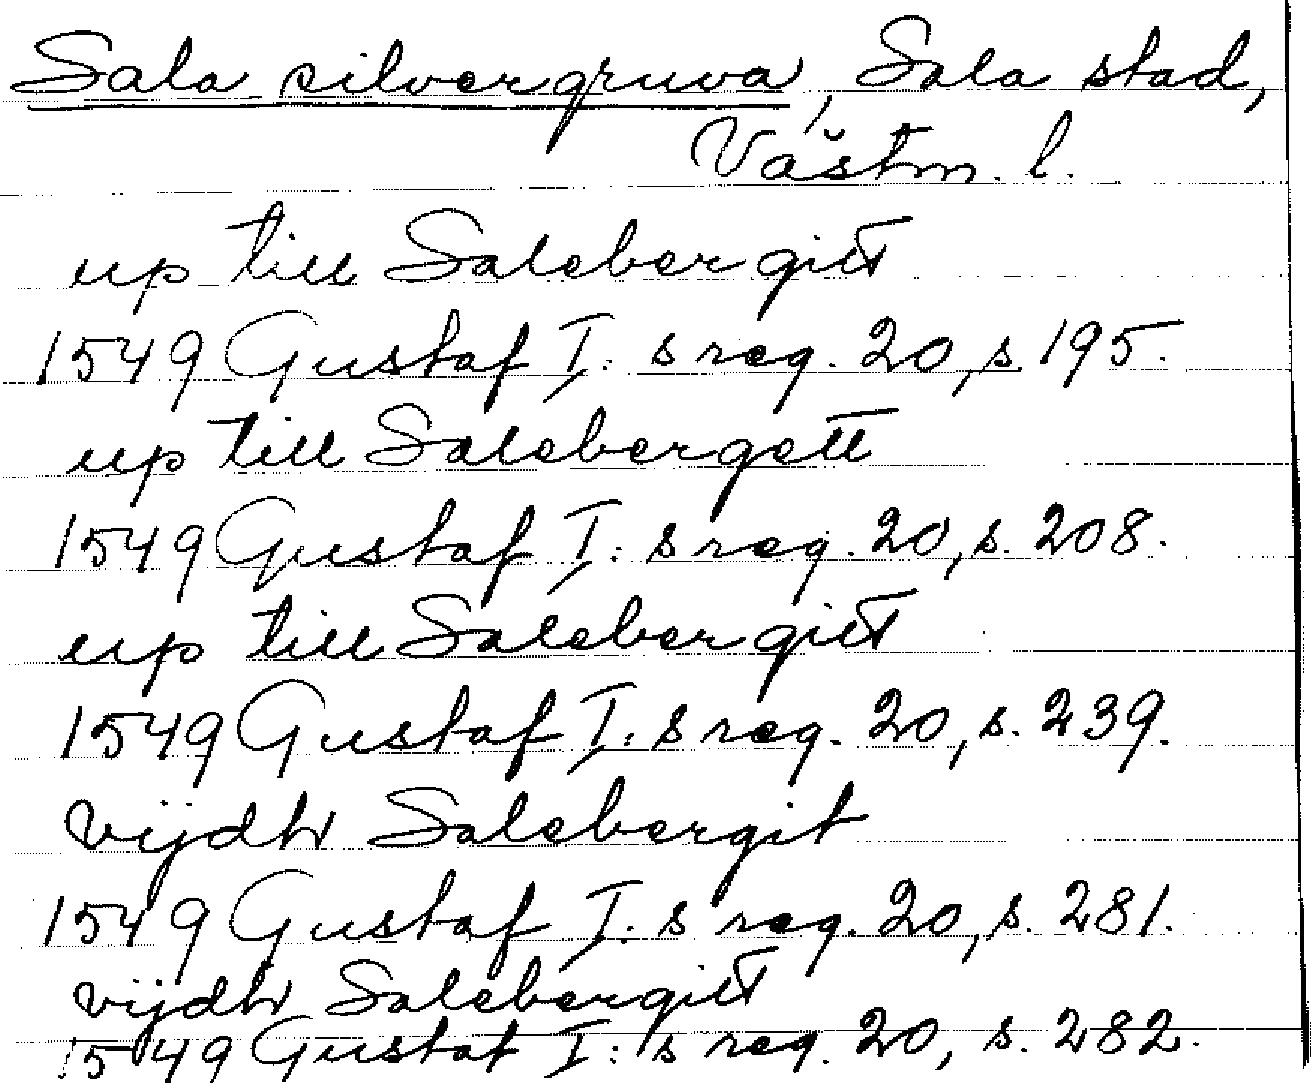 Sala silvergruva, Sala stad,
Västm. l.
up till Salebergitt
1549 Gustaf I: s reg. 20, s 195.
up till Salebergett
1549 Gustaf I: s reg. 20, s. 208.
up till Salebergitt
1549 Gustaf I: s reg. 20, s. 239.
vijdh Salebergit
1549 Gustaf I: s reg. 20, s. 281.
vijdh Salebergitt
1549 Gustaf I: s reg. 20, s. 282.